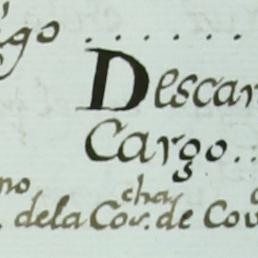 igo . . . . . . .
Descar
Cargo . .
no cha
. dela Cor. de Cov